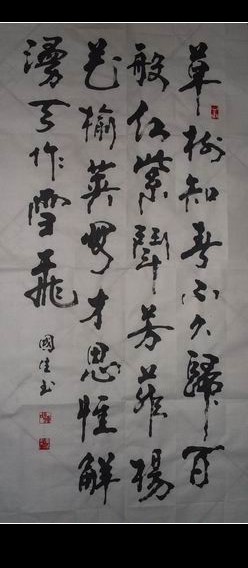 草樹知春不久歸百
般红紫鬥芳菲楊
花榆莢無才思惟解
漫天作雪飛
國书